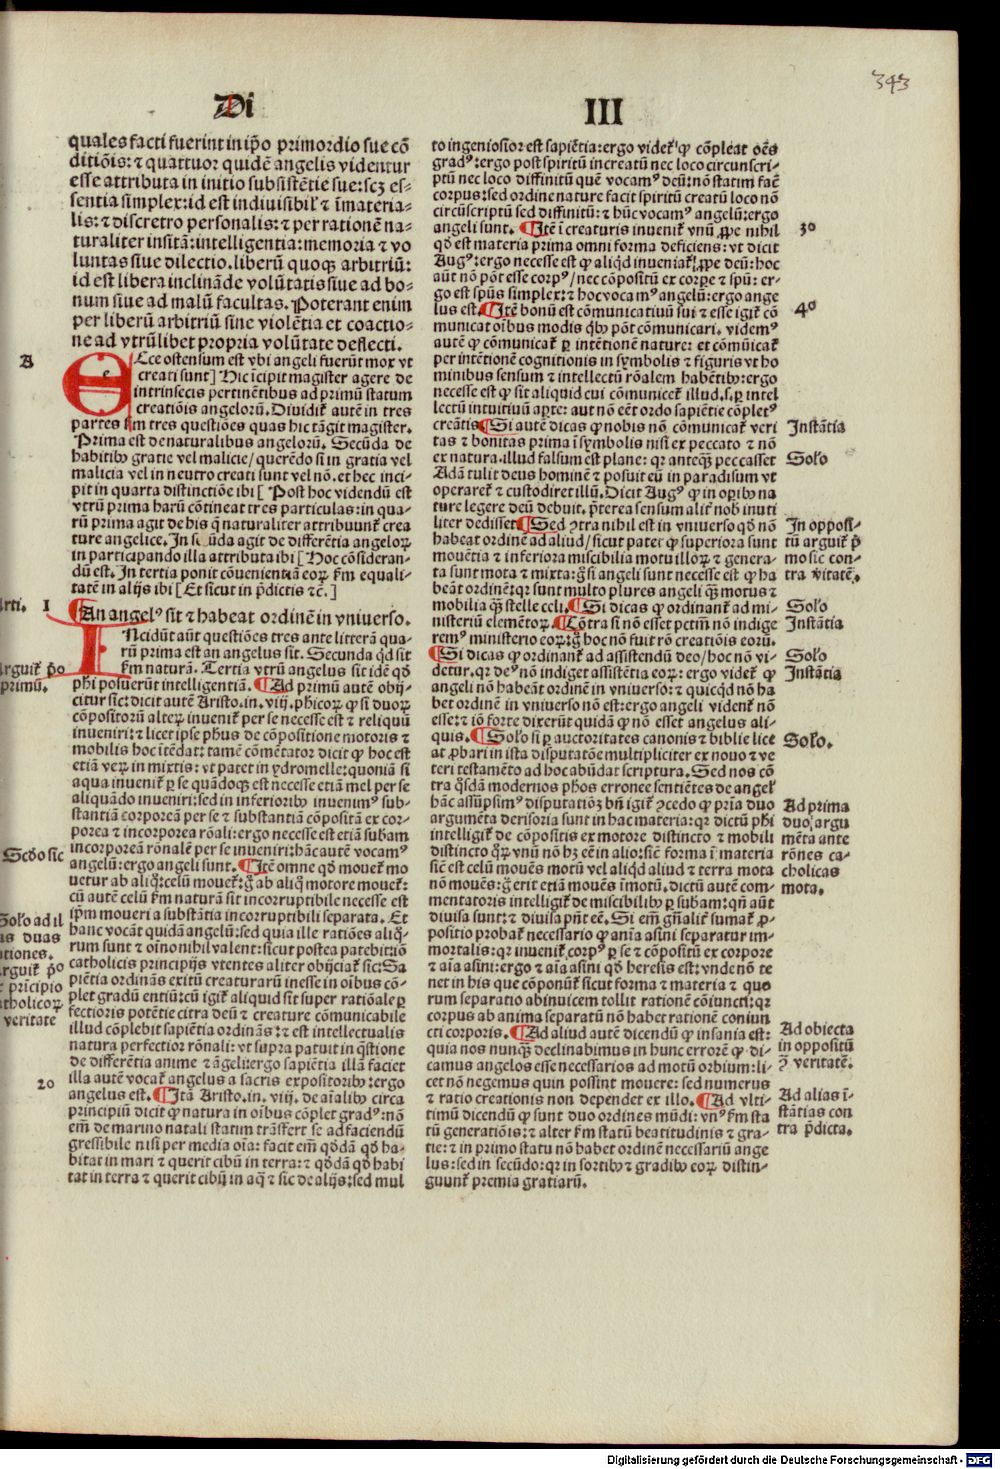 343
Di
III
quales facti fuerint in ip̄o primordio sue cō
ditiōis: ⁊ quattuor quidē angelis videntur
esse attributa in initio subsistētie sue: scꝫ es-
sentia simplex: id est indiuisibil' ⁊ īmateria-
lis: ⁊ discretio personalis: ⁊ per rationē na-
turaliter insitā: intelligentia: memoria ⁊ vo
luntas siue dilectio. liberū quoqꝫ arbitriū:
id est libera inclinādę volūtatis siue ad bo-
num siue ad malū facultas. Poterant enim
per liberū arbitriū sine violētia et coactio-
ne ad vtrūlibet propria volūtate deflecti.
A
Ece ostensum est vbi angeli fuerūt mox vt
creati sunt] Hic īcipit magister agere de
intrinsecis pertinētibus ad primū statum
creatiōis angelorū. Diuidit᷑ autē in tres
partes ẜm tres questiōes quas hic tāgit magister.
Prima est de naturalibus angelorū. Secūda de
habitibꝰ gratie vel malicie/ querēdo si in gratia vel
malicia vel in neutro creati sunt vel nō. et hec inci-
pit in quarta distinctiōe ibi [ Post hoc videndū est
vtrū prima harū cōtineat tres particulas: in qua-
rū prima agit de his q̄ naturaliter attribuunt᷑ crea
ture angelice. In secūda agit de differētia angeloꝝ
in participando illa attributa ibi [ Hoc cōsideran-
dū est. In tertia ponit cōuenientiā eoꝝ ẜm equali-
tatē in alijs ibi [ Et sicut in p̄dictis ⁊c̄. ]
Arti. I
An angelꝰ sit ⁊ habeat ordinē in vniuerso.
INcidūt aūt questiōes tres ante litterā qua-
rū prima est an angelus sit. Secunda qd̄ sit
ẜm naturā. Tertia vtrū angelus sit idē qd̄
Arguit᷑ p̄o
primū.
phi posuerūt intelligentiā. ¶ Ad primū autē obij-
citur sic: dicit autē Aristo. in .viij. phicoꝝ ꝙ si duoꝝ
cōpositorū alteꝝ inuenit᷑ per se necesse est ⁊ reliquū
inueniri: ⁊ licet ipse phus de cōpositione motoris ⁊
mobilis hoc ītēdat: tamē cōmētator dicit ꝙ hoc est
etiā veꝝ in mixtis: vt patet in ydromelle: quoniā si
aqua inuenit᷑ ꝑ se quādoqꝫ est necesse etiā mel per se
aliquādo inueniri: sed in inferioribꝰ inuenimꝰ sub-
stantiā corporeā per se ⁊ substantiā cōpositā ex cor-
porea ⁊ incorporea rōnali: ergo necesse est etiā subam
incorporeā rōnalē per se inueniri: hāc autē vocamꝰ
Scd̄o sic
angelū: ergo angeli sunt. ¶ Itē omne qd̄ mouet᷑ mo
uetur ab aliq̄: celū mouet᷑: gͦ ab aliq̄ motore mouet᷑:
cū autē celū ẜm naturā sit incorruptibile necesse est
ip̄m moueri a substātia incorruptibili separata. Et
Solo ad il
las duas
rationes.
hanc vocāt quidā angelū: sed quia ille ratiōes aliq̄-
rum sunt ⁊ oīno nihil valent: sicut postea patebit: iō
Arguit᷑ p̄o
ex pricipio
catholicoꝝ
ꝓ veritate
catholicis principijs vtentes aliter obijciat᷑ sic: Sa
piētia ordināns exitū creaturarū inesse in oībus cō-
plet gradū entiū: cū igit᷑ aliquid sit super ratiōale ꝑ
fectioris potētie citra deū ⁊ creature cōmunicabile
illud cōplebit sapiētia ordināns: ⁊ est intellectualis
natura perfectior rōnali: vt supra patuit in q̄stione
de differētia anime ⁊ āgeli: ergo sapiētia illā faciet
2o
illa autē vocat᷑ angelus a sacris expositoribꝰ: ergo
angelus est. ¶ Itā Aristo. in .viij. de aīalibꝰ circa
principiū dicit ꝙ natura in oībus cōplet gradꝰ: nō
em̄ de marino natali statim trāsfert se ad faciendū
gressibile nisi per media oīa: facit em̄ qd̄dā qd̄ ha-
bitat in mari ⁊ querit cibū in terra: ⁊ qd̄dā qd̄ habi
tat in terra ⁊ querit cibū in aq̄ ⁊ sic de alijs: sed mul
to ingeniosior est sapiētia: ergo videt᷑ ꝙ cōpleat oēs
gradꝰ: ergo post spiritū increatū nec loco circunscri-
ptū nec loco diffinitū quē vocamꝰ deū: nō statim facit
corpus: sed ordine nature facit spiritū creatū loco nō
circūscriptū sed diffinitū: ⁊ hūc vocamꝰ angelū: ergo
3o
angeli sunt. ¶ Itē ī creaturis inuenit᷑ vnū ꝓpe nihil
qd̄ est materia prima omni forma deficiens: vt dicit
Augꝰ: ergo necesse est ꝙ aliqd̄ inueniat᷑ ꝓpe deū: hoc
aūt nō pōt esse corpꝰ/ nec cōpositū ex corpe ⁊ spū: er-
go est spūs simplex: ⁊ hoc vocamꝰ angelū: ergo ange
4o
lus est. ¶ Itē bonū est cōmunicatiuū sui ⁊ esse igit᷑ cō
municat oībus modis qͥbꝰ pōt cōmunicari. videmꝰ
autē ꝙ cōmunicat᷑ ꝑ intētionē nature: et cōmunicat᷑
per intētionē cognitionis in symbolis ⁊ figuris vt ho
minibus sensum ⁊ intellectū rōalem habētibꝰ: ergo
necesse est ꝙ sit aliquid cui cōmunicet᷑ illud. s. ꝑ intel
lectū intuitiuū aꝑte: aut nō eēt ordo sapiētie cōpletꝰ
Instātia
creātis ¶ Si autē dicas ꝙ nobis nō cōmunicat᷑ veri
tas ⁊ bonitas prima ī symbolis nisi ex peccato ⁊ nō
Solo
ex natura. illud falsum est plane: qr anteqꝫ peccasset
Adā tulit deus hominē ⁊ posuit eū in paradisum vt
operaret᷑ ⁊ custodiret illū. Dicit Augꝰ ꝙ in opibꝰ na
ture legere deū debuit. p̄terea sensum alit᷑ nob̄ inuti
In opposi-
tū arguit᷑ p̄
mo sic con-
tra v̄itatē.
liter dedisset ¶ Sed ꝯtra nihil est in vniuerso qd̄ nō
habeat ordinē ad aliud/ sicut patet ꝙ superiora sunt
mouētia ⁊ inferiora miscibilia motu illoꝝ ⁊ genera-
ta sunt mota ⁊ mixta: gͦ si angeli sunt necesse est ꝙ ha
beāt ordinē: qr sunt multo plures angeli qꝫ motus ⁊
Solo
mobilia qꝫ stelle celi. ¶ Si dicas ꝙ ordinant᷑ ad mi-
Instātia
nisteriū elemētoꝝ. ¶ Cōtra si nō esset pctm̄ nō indige
remꝰ ministerio eoꝝ: gͦ hoc nō fuit rō creatiōis eorū.
Solo
¶ Si dicas ꝙ ordinant᷑ ad assistendū deo/ hoc nō vi-
Instātia
detur. qr deꝰ nō indiget assistētia eoꝝ: ergo videt᷑ ꝙ
angeli nō habeāt ordinē in vniuerso: ⁊ quicqd̄ nō ha
bet ordinē in vniuerso nō est: ergo angeli vident᷑ nō
esse: ⁊ iō forte dixerūt quidā ꝙ nō esset angelus ali-
Solo.
quis. ¶ Solo si ꝑ auctoritates canonis ⁊ biblie lice
at ꝓbari in ista disputatōe multipliciter ex nouo ⁊ ve
teri testamēto ad hoc abūdat scriptura. Sed nos cō
tra qͦsdā modernos phos erronee sentiētes de angel'
Ad prima
duo argu
mēta ante
rōnes ca-
tholicas
mota.
hāc assūpsimꝰ disputatiōꝫ bn̄ igit᷑ ꝯcedo ꝙ prīa duo
argumēta derisoria sunt in hac materia: qr dictū phi
intelligit᷑ de cōpositis ex motore distincto ⁊ mobili
distincto qͦꝝ vnū nō hꝫ eē in alio: siēt forma ī materia
siēt est celū mouēs motū vel aliqd̄ aliud ⁊ terra mota
nō mouēs: gͦ erit etiā mouēs īmotū. dictū autē com-
mentatoris intelligit᷑ de miscibilibꝰ ꝑ subam: qn̄ aūt
diuisa sunt: ⁊ diuisa pn̄t eē. Si em̄ gn̄alit᷑ sumat᷑ ꝓ-
positio probat᷑ necessario ꝙ anīa asini separatur im-
mortalis: qr inuenit᷑ corpꝰ ꝑ se ⁊ cōpositū ex corpore
⁊ aīa asini: ergo ⁊ aīa asini qd̄ heresis est: vnde nō te
net in his que cōponūt᷑ sicut forma ⁊ materia ⁊ quo
rum separatio abinuicem tollit rationē cōiuncti: qr
corpus ab anima separatū nō habet rationē coniun
Ad obiecta
in oppositū
ꝯ veritatē.
cti corporis. ¶ Ad aliud autē dicendū ꝙ insania est:
quia nos nunqꝫ declinabimus in hunc errorē ꝙ di-
camus angelos esse necessarios ad motū orbium: li-
cet nō negemus quin possint mouere: sed numerus
Ad alias ī-
stātias con
tra p̄dicta.
⁊ ratio creationis non dependet ex illo. ¶ Ad vlti-
timū dicendū ꝙ sunt duo ordines mūdi: vnꝰ ẜm sta
tū generatiōis: ⁊ alter ẜm statū beatitudinis ⁊ gra-
tie: ⁊ in primo statu nō habet ordinē necessariū ange
lus: sed in secūdo: qr in sortibꝰ ⁊ gradibꝰ eoꝝ distin-
guunt᷑ premia gratiarū.
Digitalisierung gefördert durch die Deutsche Forschungsgemeinschaft - DFG